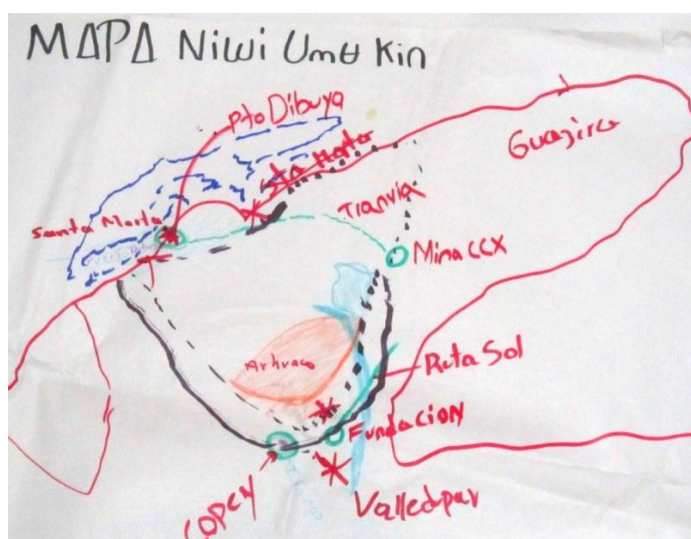 MAPA Niwi Umʉ Kin
Pto Dibuya
Guajira
Sta Marta
Tranvia
Santa Marta
Mina CCX
Arhuaco
Ruta Sol
Fundacion
COPEY
Valledpar